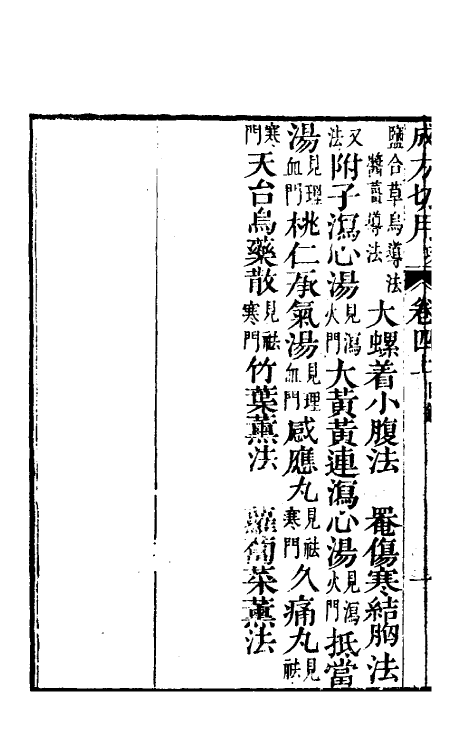 成方切用 卷四上 目錄
鹽合草烏導法 醬薑導法 大螺着小腹法 罨傷寒結胸法
又法 附子瀉心湯見瀉火門 大黃黃連瀉心湯見瀉火門 抵當
湯見理血門 桃仁承氣湯見理血門 感應丸見祛寒門 久痛丸見祛
寒門 天台烏藥散見祛寒門 竹葉薰法 蘿蔔菜薰法